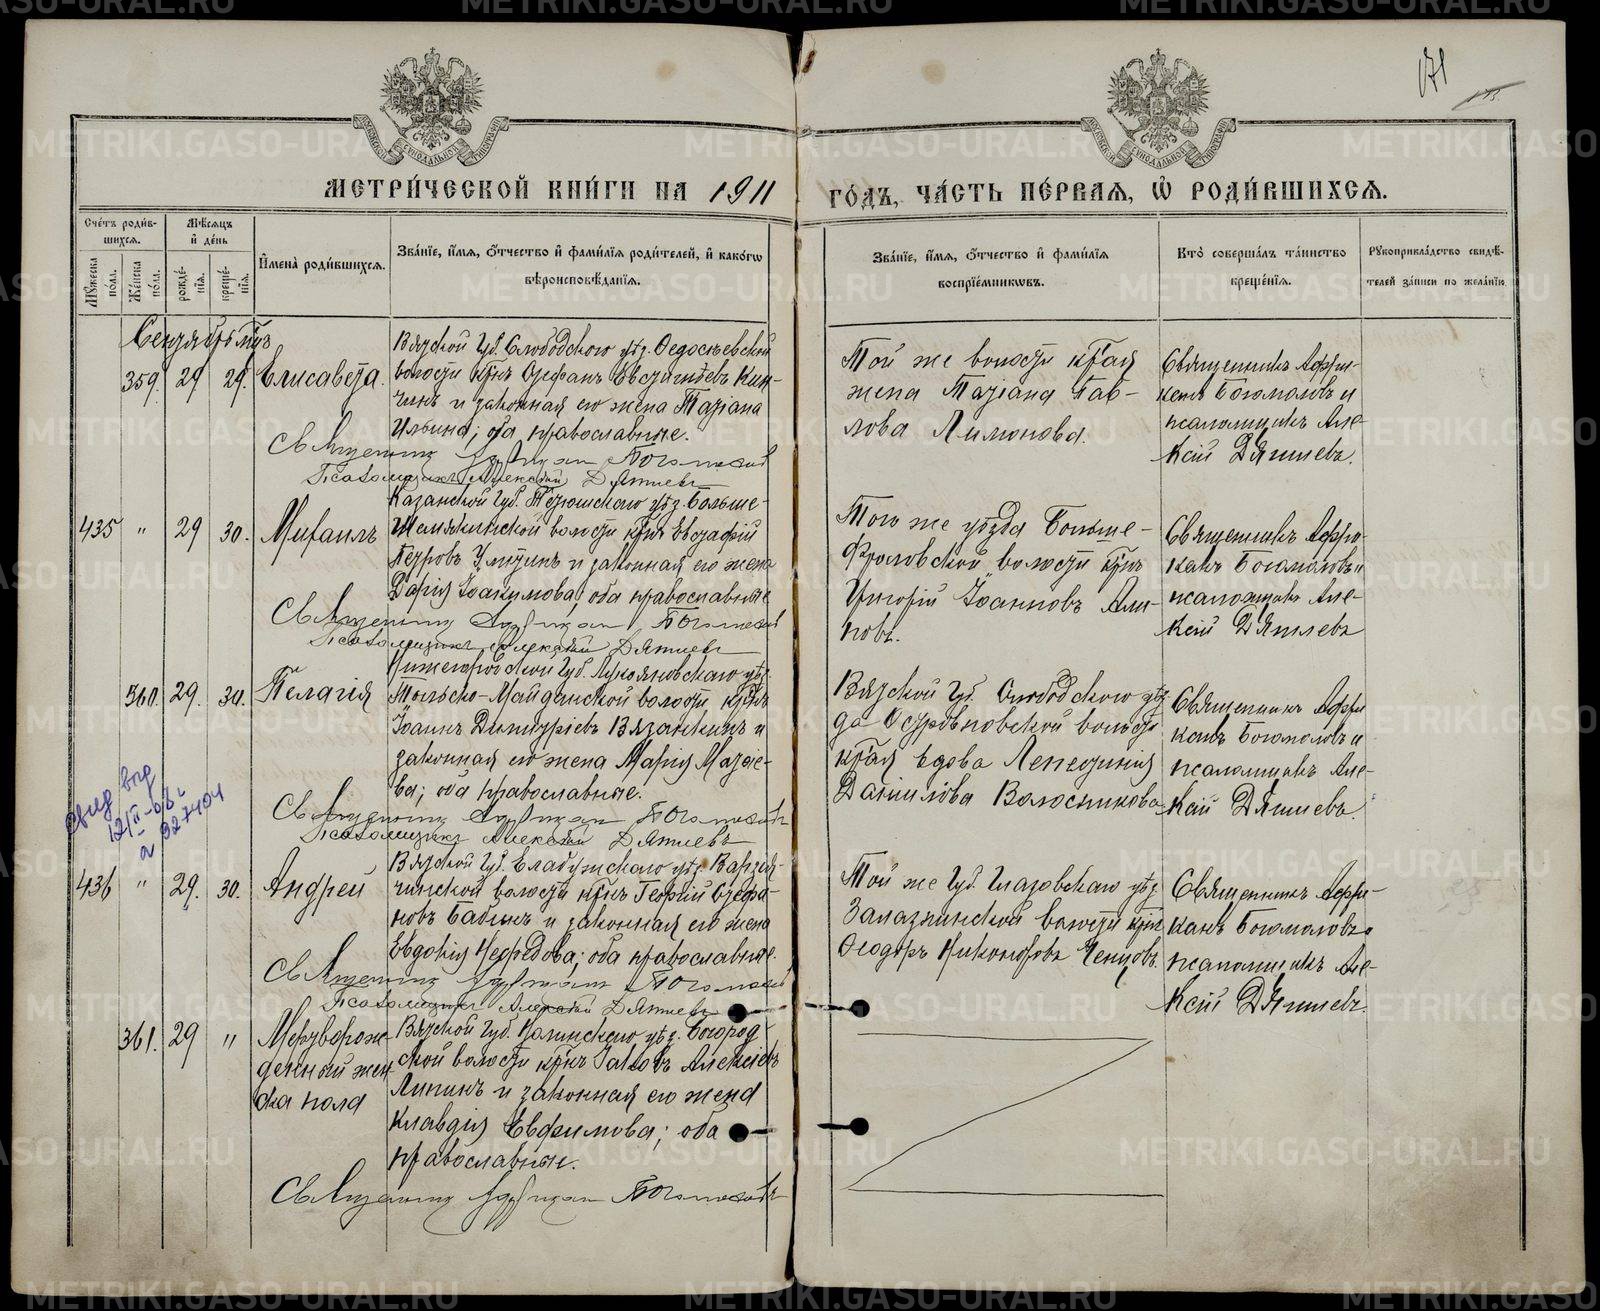 171
МЕТРИ́ЧЕСКОЙ КНИ́ГИ НА 1911 ГО́ДЪ, ЧА́СТЬ ПЕ́РВАЯ, Ѡ РОДИ́ВШИХСЯ.
Сче́тъ роди́в-
шихся.
Мѣ́сяцъ
и де́нь
Му́жеска по́лл.
Же́нска по́лл.
рожде́-
нїя.
креще́-
нїя.
И҆мена̀ роди́вшихся.
Зва́нїе, и҆́мя, о҆́тчество и҆ фами́лїя роди́телей, и҆ како́гѡ
вѣроисповѣ́данїя.
Зва́нїе, и҆́мя, о҆́тчество и҆ фами́лїя
воспрїе́мникѡвъ.
Кто̀ соверша́лъ та́инство
креще́нїя.
Рꙋкоприкла́дство свидѣ́-
телей за́писи по жела́нїю.
Сентябрь м-цъ
359. 29 29. Елисавета.
Вятской Губ. Слободского уѣз. Ѳедосѣевской
волости кр-нъ Стефанъ Евстигнѣевъ
и законная его жена Татіана
Ильина; оба православные.
Священникъ Богомолов
Псаломщикъ Алексѣй Дѣтлевъ
Той же волости кр-ая
жена Татіана Пав-
лова Лимонова.
Священникъ Афри-
канъ Богомоловъ и
псаломщикъ Але-
ксѣй
435 " 29 30. Михаилъ
Казанской Губ. Тетюшскаго уѣз. Больше-
Шемякинской волости кр-нъ Евстафій
Петровъ и законная его жена
Дарія Іоакимова; оба православные
Священникъ Богомолов
Псаломщикъ Алексѣй
Того же уѣзда Больше-
Фроловской волости кр-нъ
Григорій Іоанновъ Али-
повъ.
Священникъ Афри-
канъ Богомоловъ и
псаломщикъ Але-
ксѣй
360. 29. 30. Пелагія
Нижегородской Губ. Лукояновскаго уѣз.
Польско-Майданской волости, кр-нъ
Іоаннъ Димитріевъ Вязанкинъ и
законная его жена Марія Матѳе-
ва; оба православные.
Священникъ Богомолов
Псаломщикъ Алексѣй
Вятской Губ. Слободского уѣз-
да Островновской волости
кр-ая вдова
Даниилова Волосникова
Священникъ Афри
канъ Богомоловъ и
псаломщикъ Але-
ксѣй
436 " 29. 30. Андрей
Вятской Губ. Елабужскаго уѣз. Варзят-
чинской волости кр-нъ Георгій Стефа-
новъ Бабинъ и законная его жена
Евдокія Неѳедова; оба православные.
Священникъ Богомолов
Псаломщикъ Алексѣй
Той же Губ. Глазовскаго уѣз.
Залазнинской волости кр-нъ
Ѳеодоръ Никоноровъ Ченцовъ.
Священникъ Афри-
канъ Богомоловъ
псаломщикъ Але-
ксѣй
361. 29 " Мертворож-
денный жен-
ска пола
Вятской Губ. Нолинскаго уѣз. Богород-
ской волости кр-нъ Іаковъ Алексѣевъ
Липинъ и законная его жена
Клавдія Евфимова; оба
православные.
Священникъ Богомолов